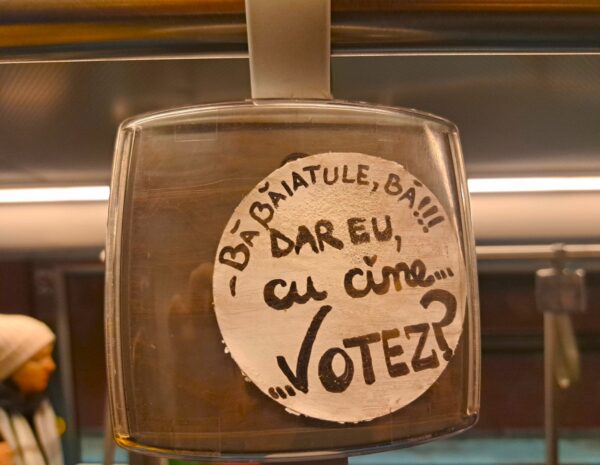 - BĂ BĂIATULE, BĂ!!!
DAR EU,
cu cine...
...VOTEZ?